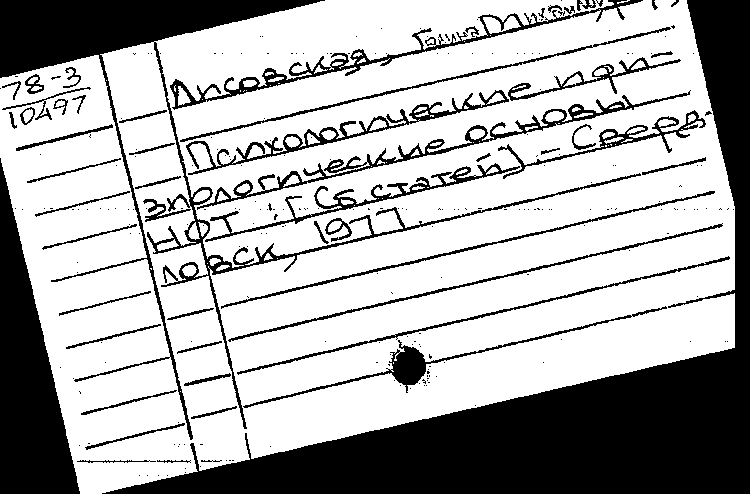 78-3
10497
Лисовская, Галина Михайловна
Психологические и фи-
зиологические основы
НОТ : [Сб. статей] - Сверд-
ловск, 1977.